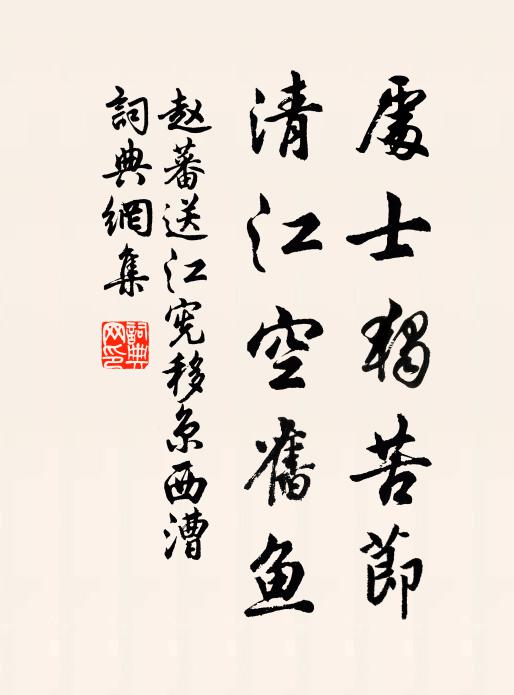 處士獨苦節
清江空舊鱼
赵蕃送江宪移京西漕
詞典網集
詞典网印